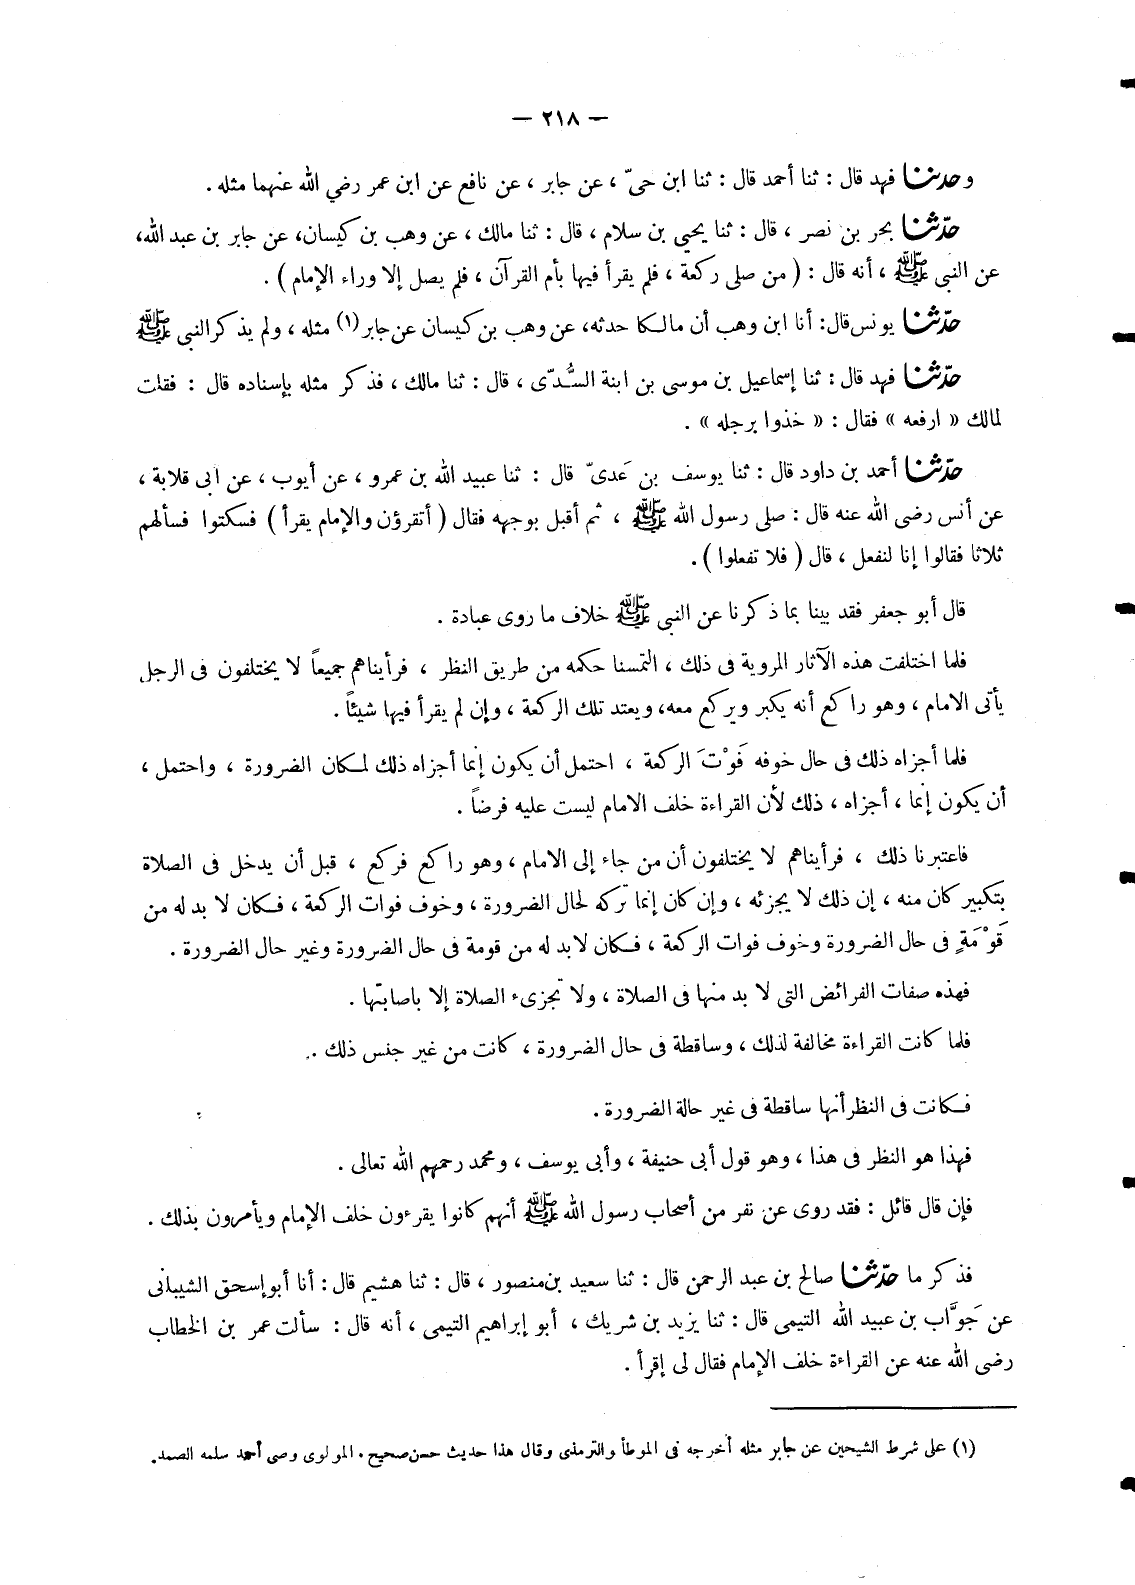 — ٢١٨ —
وحدثنا فهد قال : ثنا أحمد قال : ثنا ابن حىّ ، عن جابر ، عن نافع عن ابن عمر رضي الله عنهما مثله .
حدّثنا بحر بن نصر ، قال : ثنا يحيى بن سلام ، قال : ثنا مالك ، عن وهب بن كيسان، عن جابر بن عبد الله،
عن النبى ﷺ ، أنه قال : ( من صلى ركعة ، فلم يقرأ فيها بأم القرآن ، فلم يصل إلا وراء الإمام ) .
حدّثنا يونس قال: أنا ابن وهب أن مالكا حدثه، عن وهب بن كيسان عن جابر (١) مثله ، ولم يذكر النبى ﷺ
حدّثنا فهد قال : ثنا إسماعيل بن موسى بن ابنة السُّدّى ، قال : ثنا مالك ، فذكر مثله بإسناده قال : فقلت
لمالك « ارفعه » فقال : « خذوا برجله » .
حدّثنا أحمد بن داود قال : ثنا يوسف بن عَدىّ قال : ثنا عبيد الله بن عمرو ، عن أيوب ، عن ابى قلابة ،
عن أنس رضى الله عنه قال : صلى رسول الله ﷺ ، ثم أقبل بوجهه فقال ( أتقرؤن والإمام يقرأ ) فسكتوا فسألهم
ثلاثا فقالوا إنا لنفعل ، قال ( فلا تفعلوا ) .
قال أبو جعفر فقد بينا بما ذكرنا عن النبى ﷺ خلاف ما روى عبادة .
فلما اختلفت هذه الآثار المروية فى ذلك ، التمسنا حكمه من طريق النظر ، فرأيناهم جميعاً لا يختلفون فى الرجل
يأتى الامام ، وهو راكع أنه يكبر ويركع معه، ويعتد تلك الركعة ، وإن لم يقرأ فيها شيئاً .
فلما أجزاه ذلك فى حال خوفه فَوْتَ الركعة ، احتمل أن يكون إنما أجزاه ذلك لمكان الضرورة ، واحتمل ،
أن يكون إنما ، أجزاه ، ذلك لأن القراءة خلف الامام ليست عليه فرضاً .
فاعتبرنا ذلك ، فرأيناهم لا يختلفون أن من جاء إلى الامام ، وهو راكع فركع ، قبل أن يدخل فى الصلاة
بتكبير كان منه ، إن ذلك لا يجزئه ، وإن كان إنما تركه لحال الضرورة ، وخوف فوات الركعة ، فكان لا بد له من
قَوْمَةٍ فى حال الضرورة وخوف فوات الركعة ، فكان لابد له من قومة فى حال الضرورة وغير حال الضرورة .
فهذه صفات الفرائض التى لا بد منها فى الصلاة ، ولا تجزىء الصلاة إلا باصابتها .
فلما كانت القراءة مخالفة لذلك ، وساقطة فى حال الضرورة ، كانت من غير جنس ذلك .
فكانت فى النظر أنها ساقطة فى غير حالة الضرورة .
فهذا هو النظر فى هذا ، وهو قول أبى حنيفة ، وأبى يوسف ، ومحمد رحمهم الله تعالى .
فإن قال قائل : فقد روى عن نفر من أصحاب رسول الله ﷺ أنهم كانوا يقرءون خلف الإمام ويأمرون بذلك .
فذكر ما حدّثنا صالح بن عبد الرحمن قال : ثنا سعيد بن منصور ، قال : ثنا هشيم قال : أنا أبو إسحق الشيبانى
عن جَوَّاب بن عبيد الله التيمى قال : ثنا يزيد بن شريك ، أبو إبراهيم التيمى ، أنه قال : سألت عمر بن الخطاب
رضى الله عنه عن القراءة خلف الإمام فقال لى إقرأ .
(١) على شرط الشيحين عن جابر مثله أخرجه فى الموطأ والترمذى وقال هذا حديث حسن صحيح . المولوى وصى أحمد سلمه الصمد .